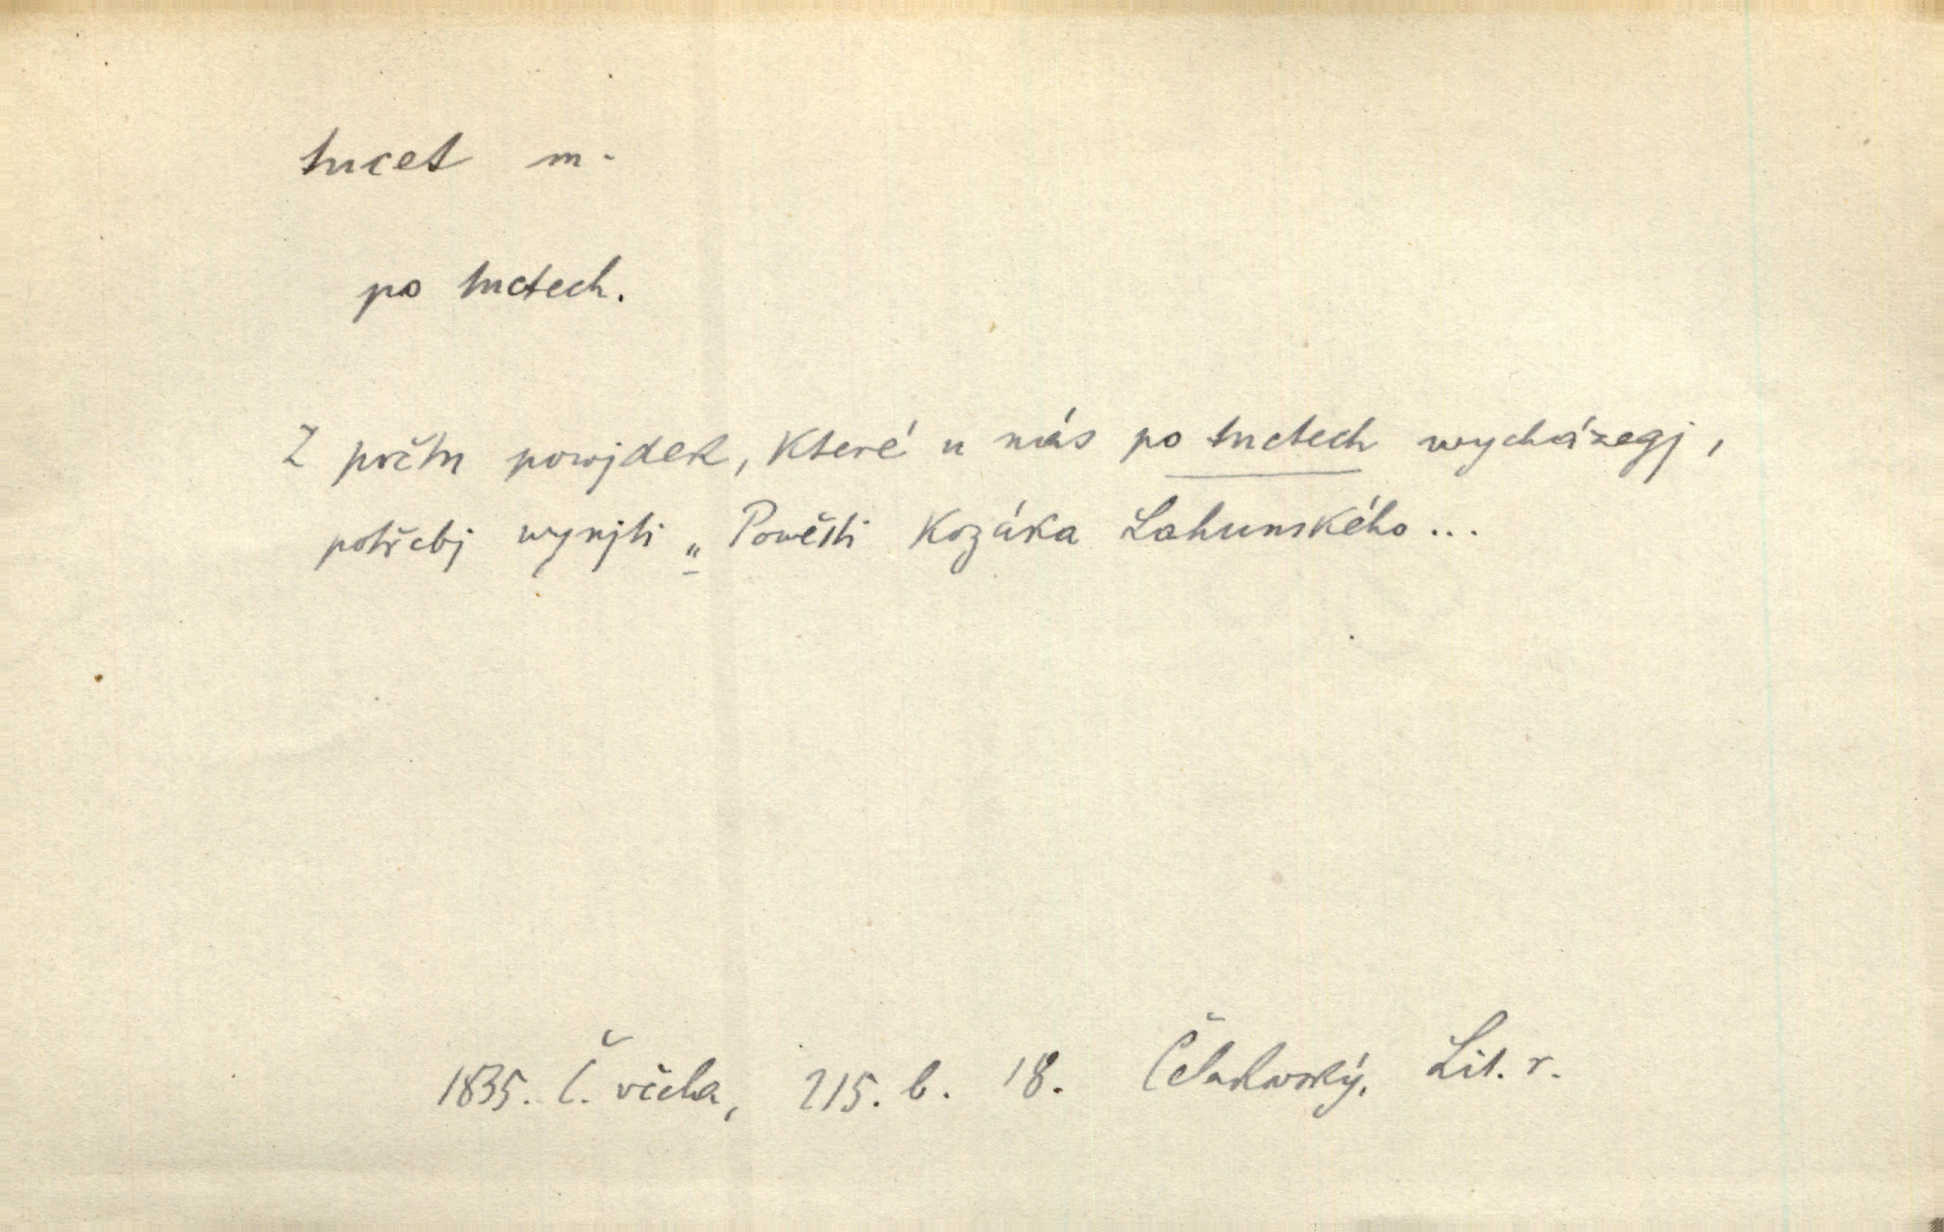 tucet m.
po tuctech.
Z počtu powjdek, které u nás po tuctech wycházegj,
potřebj wynjti „Powěsti kozáka Luhanského...
1835. Č. včela, 215. b. 18. Čelakovský. Lit. r.